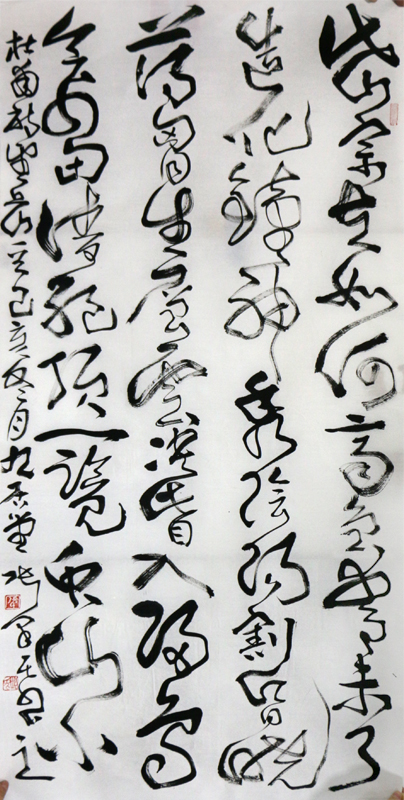 岱宗夫如何齊魯青未了
造化鍾神秀陰陽割昏曉
蕩胸生層雲決眥入歸鳥
會當凌絕頂一覽眾山小
杜甫詩望岳己亥冬月